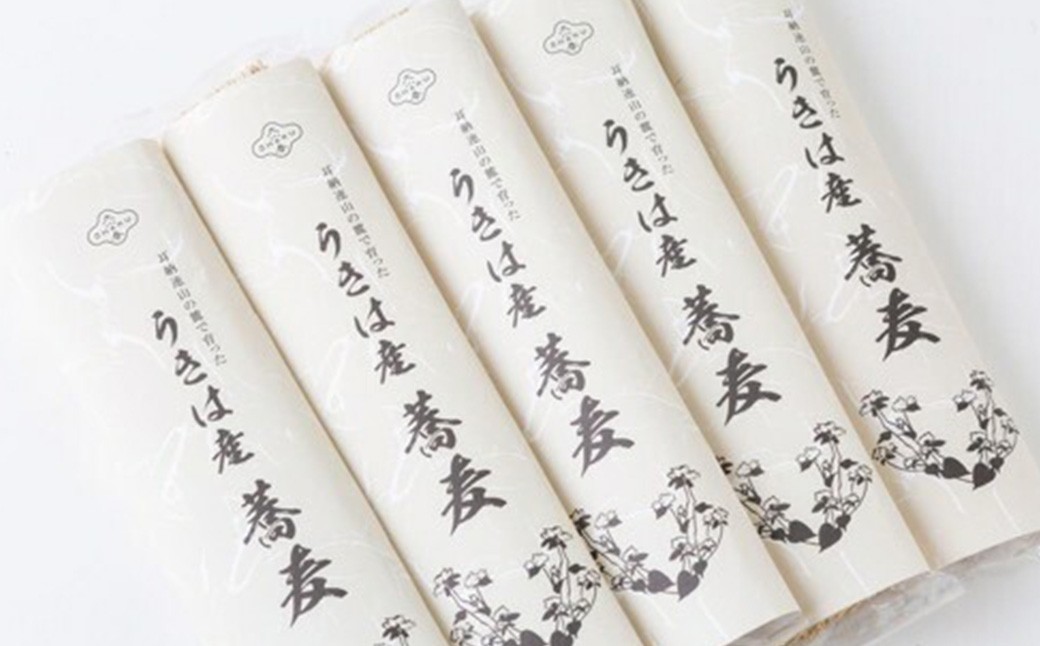 耳納連山の麓で育った
うきは産 蕎麦
耳納連山の麓で育った
うきは産 蕎麦
耳納連山の麓で育った
うきは産 蕎麦
耳納連山の麓で育った
うきは産 蕎麦
耳納連山の麓で育った
うきは産 蕎麦